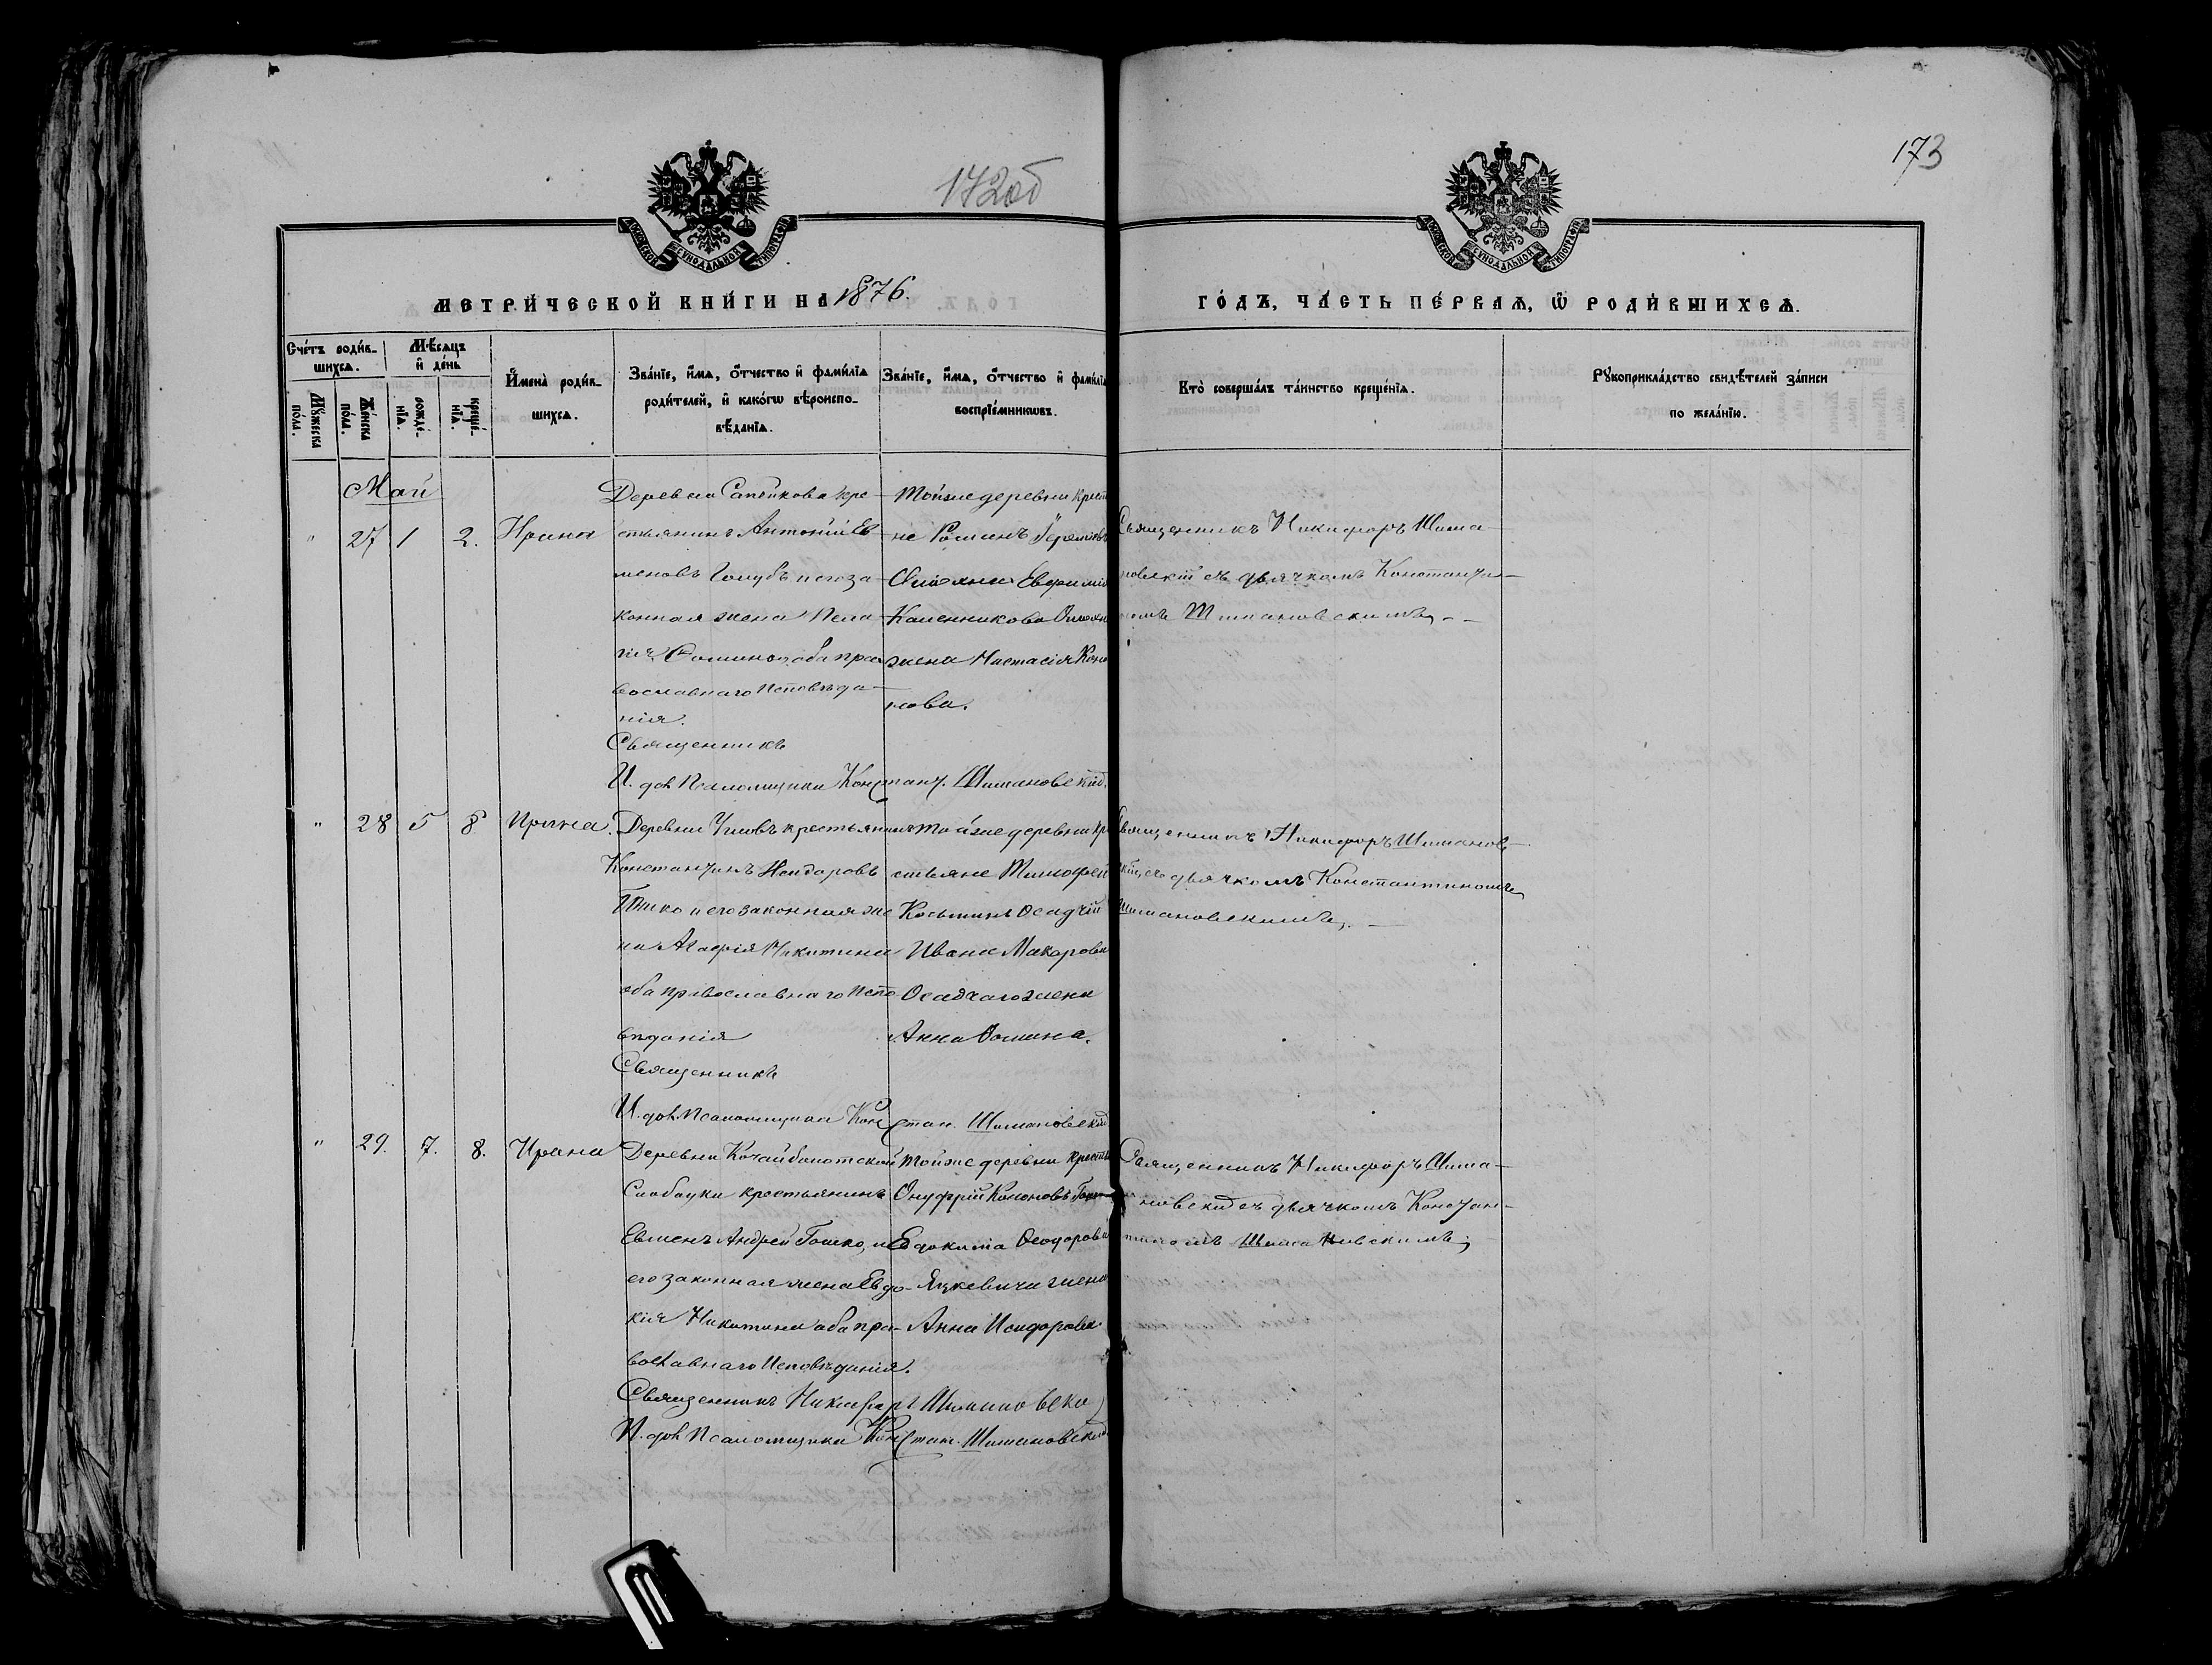 172об
173
МОСКОВСКОЙ СѴНОДАЛЬНОЙ ТИПОГРАФІИ
МОСКОВСКОЙ СѴНОДАЛЬНОЙ ТИПОГРАФІИ
МЕТРИ́ЧЕСКОЙ КНИ́ГИ НА 1876.
ГО́ДЪ, ЧА́СТЬ ПЕ́РВАѦ, Ѡ РОДИ́ВШИХСѦ.
Сче́тъ роди́в-
шихсѧ.
Мꙋ́жеска по́ла.
Же́нска по́ла.
Мѣ́сѧцъ
и де́нь
рожде́-
нїѧ.
креще́-
нїѧ.
И҆мена̀ роди́в-
шихсѧ.
Зва́нїе, и҆́мѧ, о҆́тчество и҆ фами́лїѧ
роди́телей, и҆ како́гѡ вѣроиспо-
вѣ́данїѧ.
Зва́нїе, и҆́мѧ, о҆́тчество и҆ фами́лїѧ
воспрїе́мникѡвъ.
Кто̀ соверша́лъ та́инство креще́нїѧ.
Рꙋкоприкла́дство свидѣ́телей за́писи
по жела́нїю.
Май
" 27 1 2. Ирина
Деревни Сапейкова кре-
стьянинъ Антоній Ев-
меновъ Голубъ и его за-
конная жена Пела-
гія Фомина оба пра-
вославнаго исповѣда-
нія.
Священникъ
И. дол. Псаломщика Констант. Шимановскій.
Тойже деревни крест
не Романъ
Евфимія
Каленникова
жена Настасія Коно
нова.
Священникъ Никифоръ Шима-
новскій съ дьячкомъ Константи-
номъ Шимановскимъ.
" 28 5 8 Ирина.
Деревни крестьянинъ
Константинъ
и его законная же
на Агафія Никитина
оба православнаго испо
вѣданія
Священникъ
И. дол. Псаломщика Констан. Шимановскій
Тойже деревни кр
стьяне Тимофей
Косьминъ Осадчій
Ивана Макарова
Осадчаго жена
Анна Фомина.
Священникъ Никифоръ Шиманов-
скій, съ дьячкомъ Константиномъ
Шимановскимъ.
" 29. 7. 8. Ирина
Деревни
Слободки крестьянинъ
Евменъ Андрей Гошко, и
его законная жена Евдо-
кія Никитина оба пра-
вославнаго исповѣданія.
Священникъ Никифоръ Шимановскій
И. дол. Псаломщика Констан. Шимановскій
Тойже деревни крестья
Онуфрій Кононовъ
Евдокима Феодорова
Яцкевича жена
Анна Исидорова
Священникъ Никифоръ Шима-
новскій съ дьячкомъ Констан-
тиномъ Шимановскимъ;